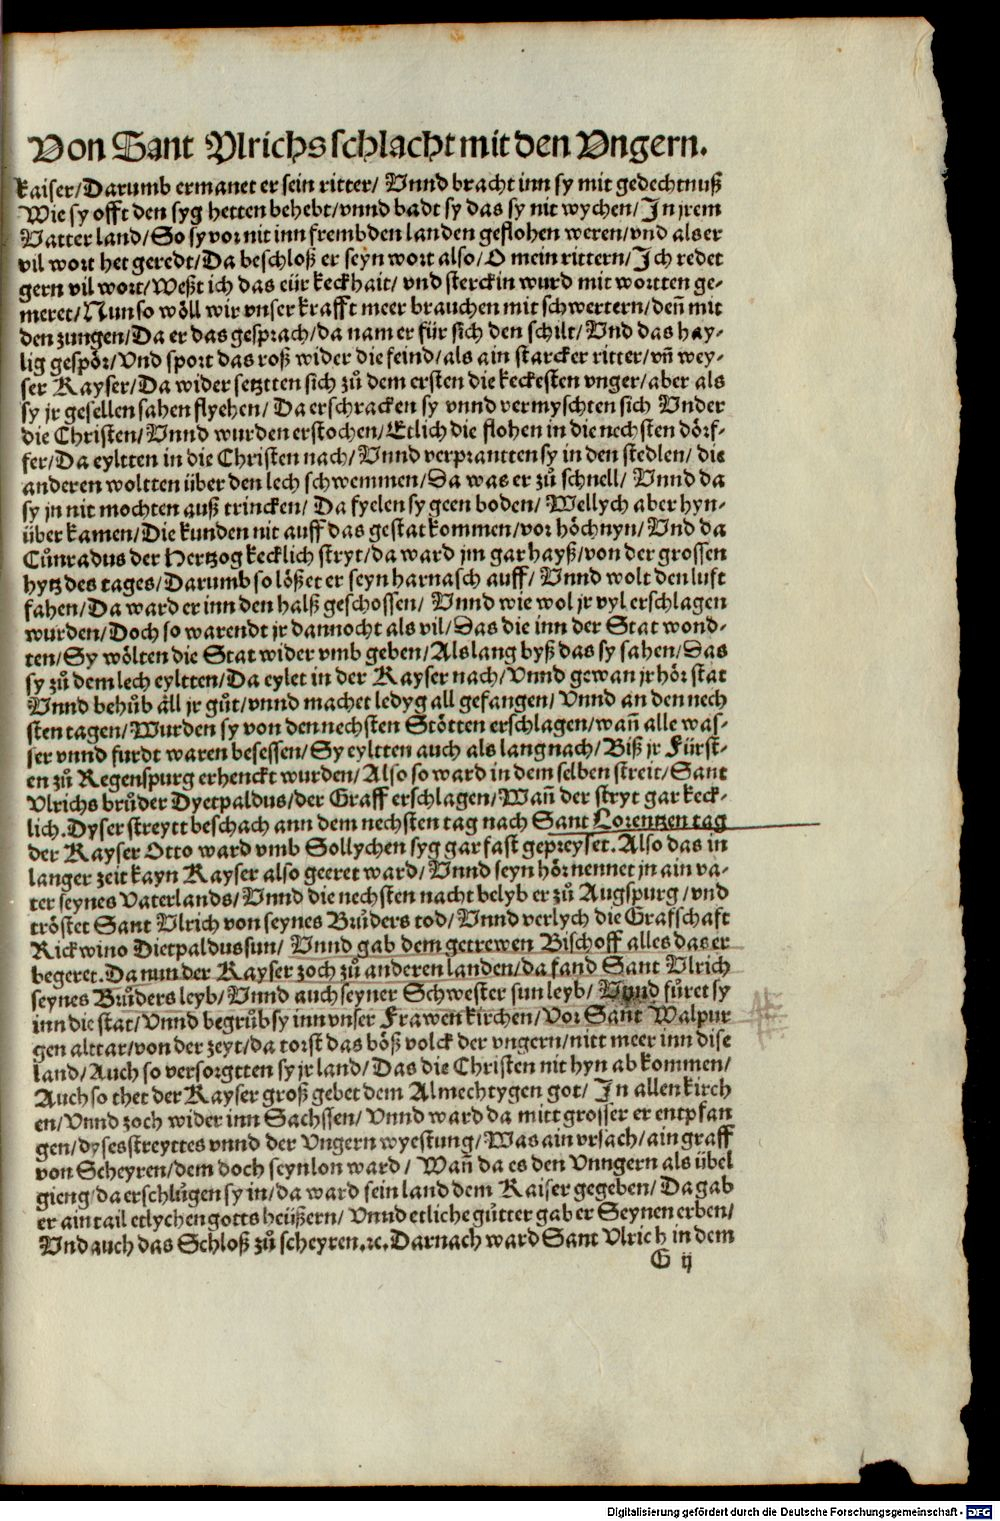 Von Sant Vlrichs schlacht mit den Vngern.
kaiser/Darumb ermanet er sein ritter/ Vnnd bracht inn sy mit gedechtnuß
Wie sy offt den syg hetten behebt/vnnd badt sy das sy nit wychen/In jrem
Vatter land/So sy vor nit inn frembden landen geflohen weren/vnd als er
vil wort het geredt/Da beschloß er seyn wort also/O mein rittern/Ich redet
gern vil wort/Weßt ich das eür keckhait/ vnd sterckin wurd mit wortten ge-
meret/Nun so wöll wir vnser krafft meer brauchen mit schwertern/deñ mit
den zungen/Da er das gesprach/da nam er für sich den schilt/Vnd das hay-
lig gespör/Vnd sport das roß wider die feind/als ain starcker ritter/vñ wey-
ser Kayser/Da wider setztten sich zů dem ersten die keckesten vnger/aber als
sy jr gesellen sahen flyehen/Da erschracken sy vnnd vermyschten sich Vnder
die Christen/Vnnd wurden erstochen/Etlich die flohen in die nechsten dörf-
fer/Da eyltten in die Christen nach/Vnnd verprantten sy in den stedlen/ die
anderen woltten über den lech schwemmen/Da was er zů schnell/ Vnnd da
sy jn nit mochten auß trincken/ Da fyelen sy geen boden/ Wellych aber hyn-
über kamen/Die kunden nit auff das gestat kommen/vor höch nyn/Vnd da
Cůnradus der Hertzog kecklich stryt/da ward jm gar hayß/von der grossen
hytz des tages/Darumb so lößet er seyn harnasch auff/ Vnnd wolt den luft
fahen/Da ward er inn den halß geschossen/ Vnnd wie wol jr vyl erschlagen
wurden/Doch so warendt jr dannocht als vil/Das die inn der Stat wond-
ten/Sy wölten die Stat wider vmb geben/Als lang byß das sy sahen/Das
sy zů dem lech eyltten/Da eylet in der Kayser nach/Vnnd gewan jr hör stat
Vnnd behůb äll jr gůt/vnnd machet ledyg all gefangen/ Vnnd an den nech
sten tagen/Wurden sy von den nechsten Stötten erschlagen/wañ alle was-
ser vnnd furdt waren besessen/Sy eyltten auch als lang nach/Biß jr Fürst-
en zů Regenspurg erhenckt wurden/Also so ward in dem selben streit/Sant
Vlrichs brůder Dyetpaldus/der Graff erschlagen/Wañ der stryt gar keck-
lich.Dyser streytt beschach ann dem nechsten tag nach Sant Lorentzen tag
der Kayser Otto ward vmb Sollychen syg gar fast gepreyset.Also das in
langer zeit kayn Kayser also geeret ward/Vnnd seyn hör nennet jn ain va-
ter seynes Vaterlands/Vnnd die nechsten nacht belyb er zů Augspurg/vnd
tröstet Sant Vlrich von seynes Brůders tod/Vnnd verlych die Grafschaft
Rickwino Dietpaldus sun/ Vnnd gab dem getrewen Bischoff alles das er
begeret.Da nun der Kayser zoch zů anderen landen/da fand Sant Vlrich
seynes Brůders leyb/Vnnd auch seyner Schwester sun leyb/ Vnnd fůret sy
inn die stat/Vnnd begrůb sy inn vnser Frawen kirchen/Vor Sant Walpur
gen alttar/von der zeyt/da torst das böß volck der vngern/nitt meer inn dise
land/Auch so versorgtten sy jr land/Das die Christen nit hyn ab kommen/
Auch so thet der Kayser groß gebet dem Almechtygen got/In allen kirch
en/Vnnd zoch wider inn Sachssen/Vnnd ward da mitt grosser er entpfan
gen/dyses streyttes vnnd der Vngern wyestung/Was ain vrsach/ain graff
von Scheyren/dem doch seyn lon ward/ Wañ da es den Vnngern als übel
gieng/da erschlůgen sy in/da ward sein land dem Kaiser gegeben/Da gab
er ain tail etlychen gotts heüßern/Vnnd etliche gůtter gab er Seynen erben/
Vnd auch das Schloß zů scheyren.ꝛc.Darnach ward Sant Vlrich in dem
G ij
Digitalisierung gefördert durch die Deutsche Forschungsgemeinschaft - DFG